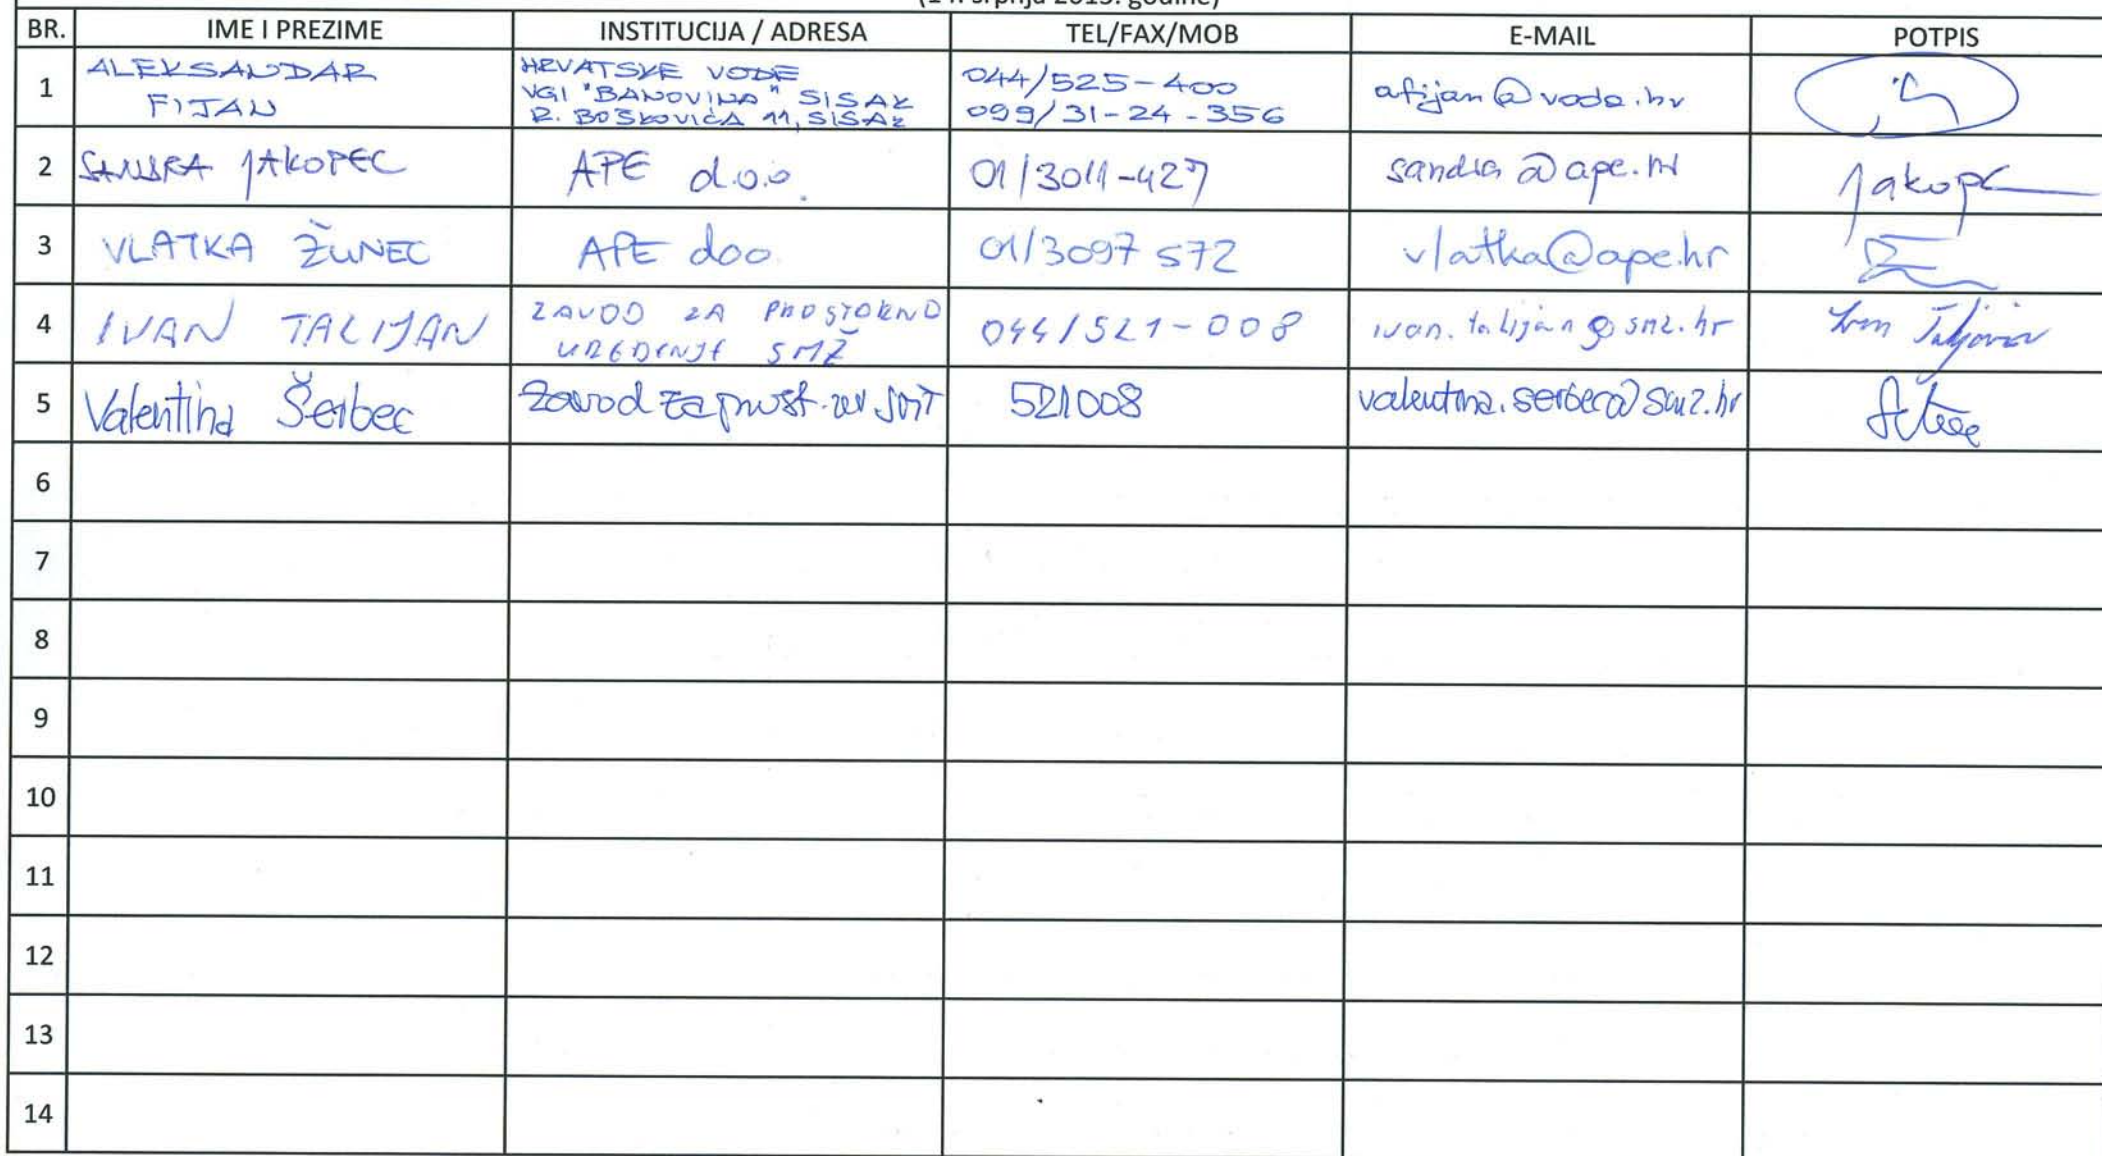 srpnja 2015. godine)
BR. IME I PREZIME INSTITUCIJA / ADRESA TEL/FAX/MOB E-MAIL POTPIS
1 ALEKSANDAR FIJAN HRVATSKE VODE VGI "BANOVINA" SISAK R. BOŠKOVIĆA 11, SISAK 044/525-400 099/31-24-356 afijan@voda.hr
2 SANDRA JAKOPEC APE d.o.o. 01/3011-427 sandra@ape.hr Jakopec
3 VLATKA ŽUNEC APE doo 01/3097 572 vlatka@ape.hr
4 IVAN TALIJAN ZAVOD ZA PROSTORNO UREĐENJE SMŽ 044/521-008 ivan.talijan@smz.hr Ivan Talijan
5 Valentina Šerbec Zavod za prost. 521008 valentina.serbec@smz.hr
6
7
8
9
10
11
12
13
14